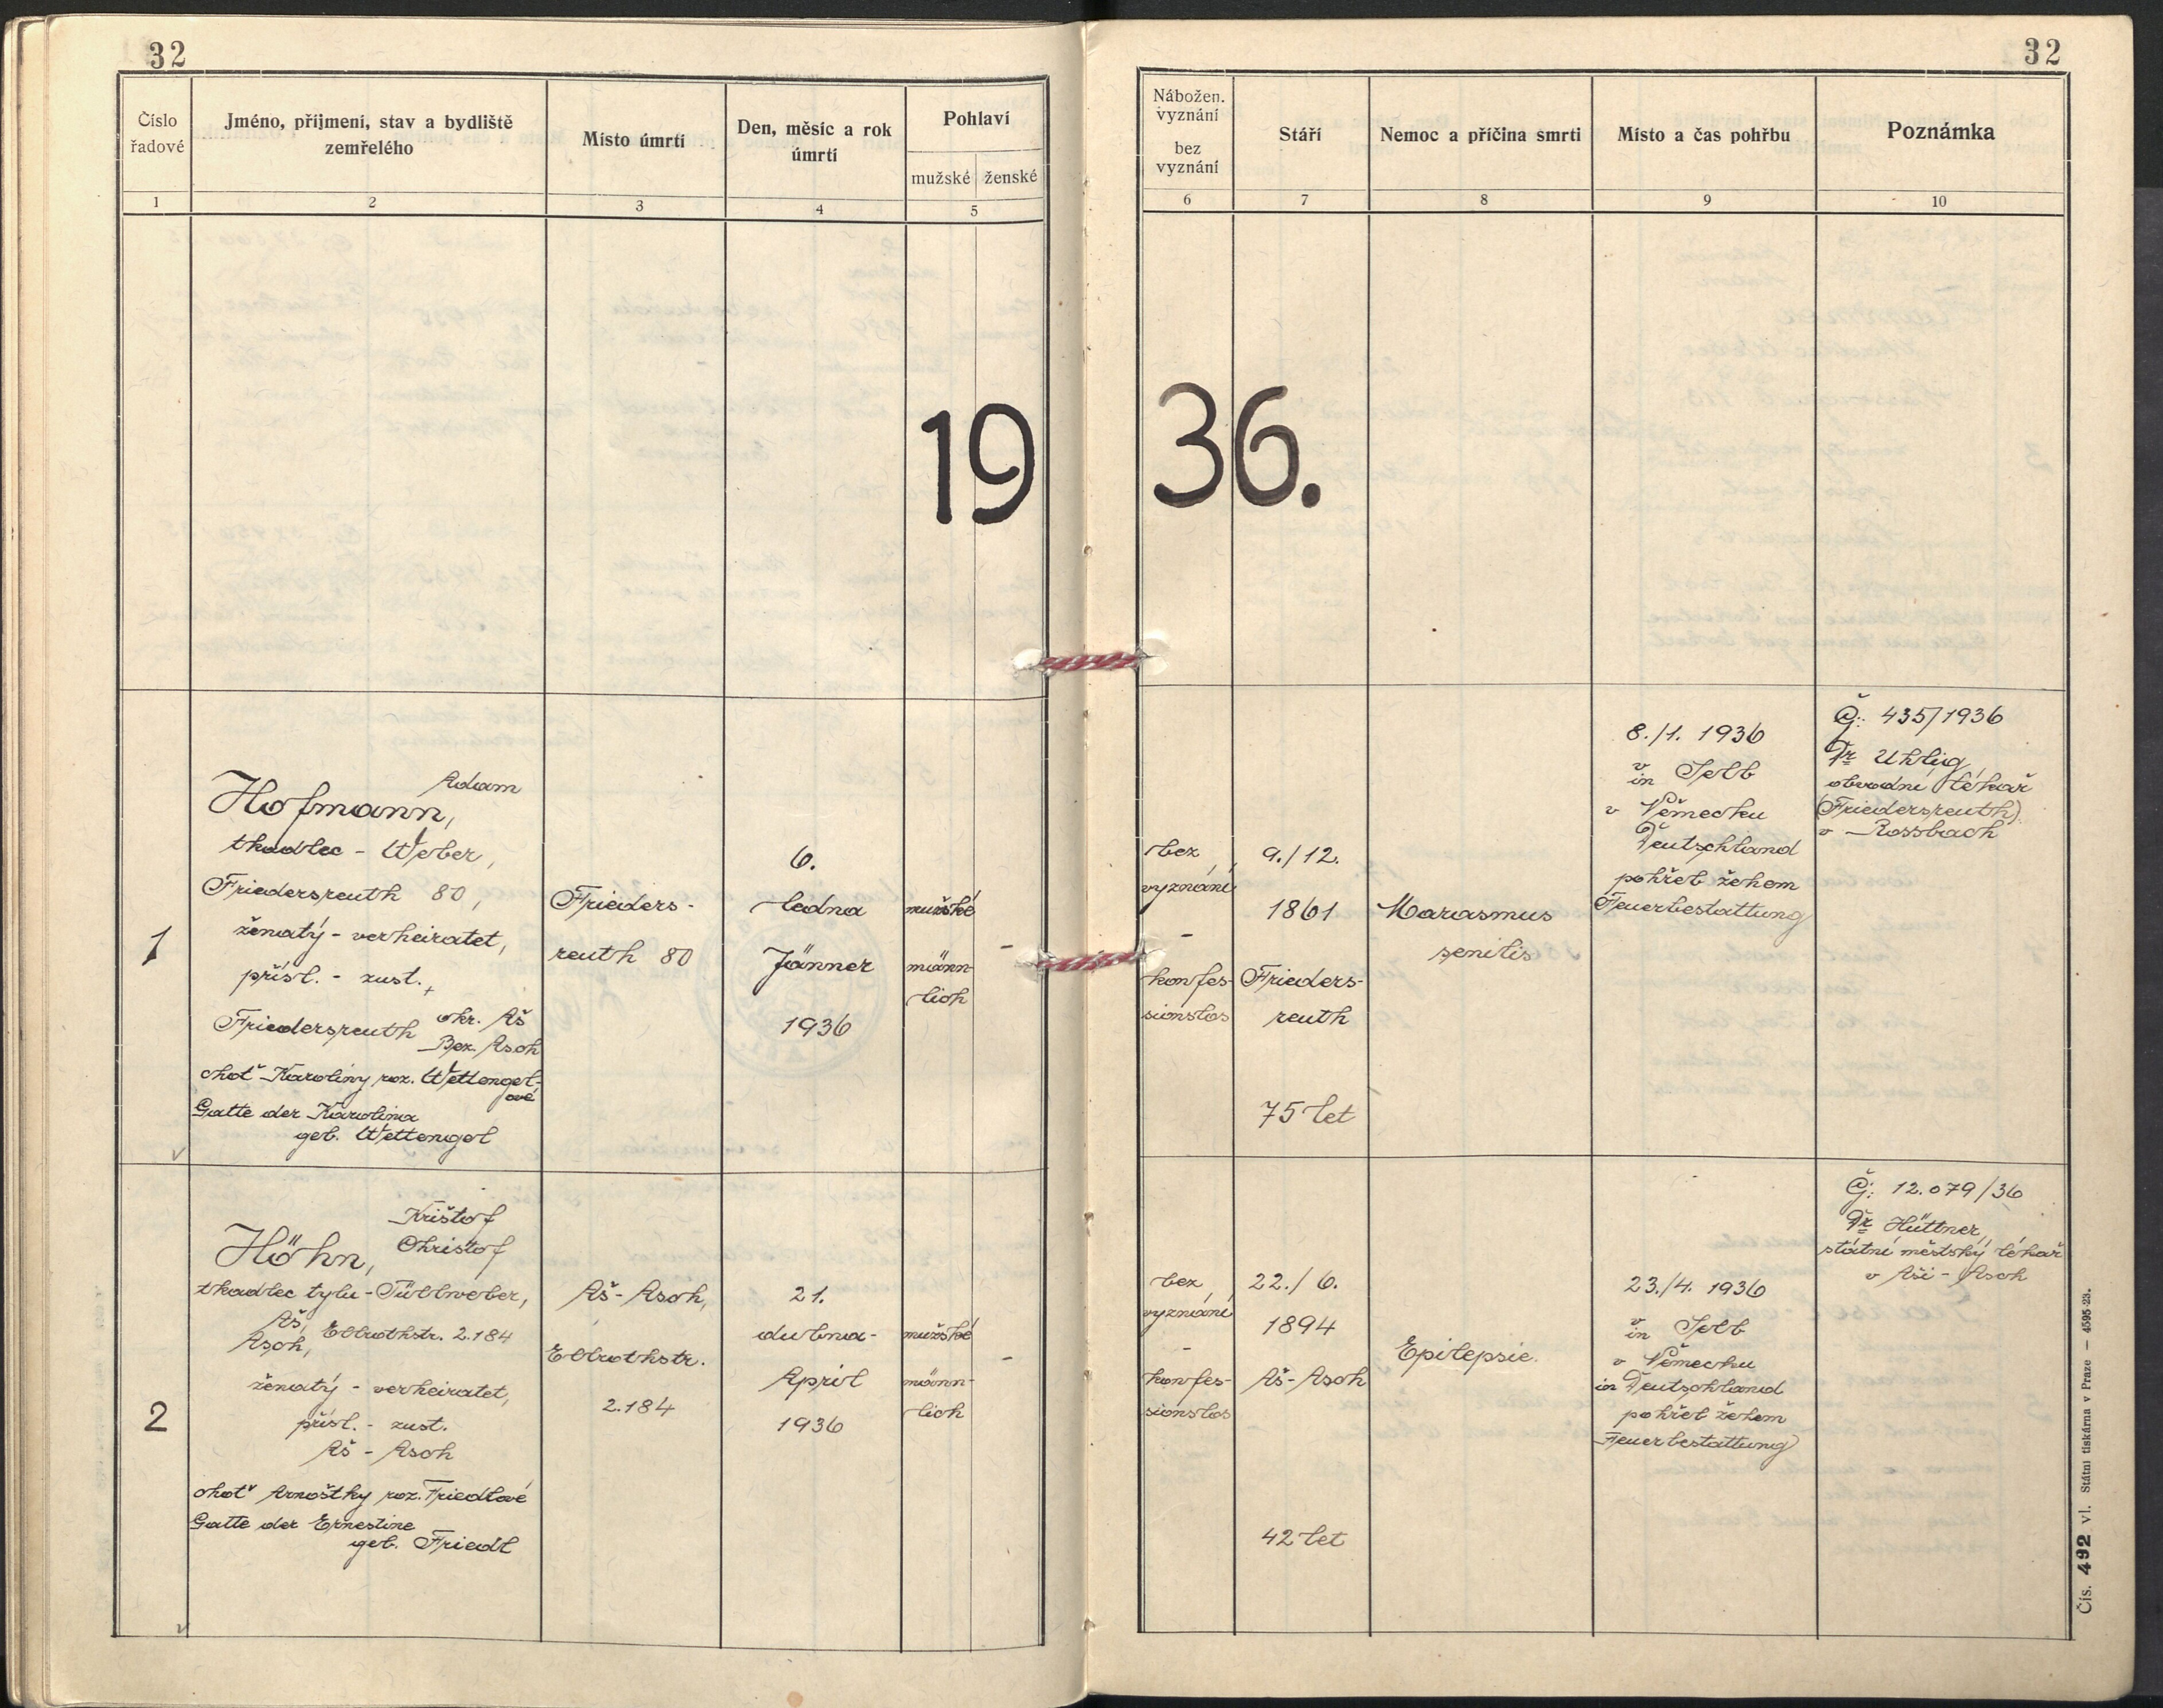 32
32
Číslo řadové
Jméno, příjmení, stav a bydliště zemřelého
Místo úmrtí
Den, měsíc a rok úmrtí
Pohlaví
mužské
ženské
Nábožen. vyznání
bez vyznání
Stáří
Nemoc a příčina smrti
Místo a čas pohřbu
Poznámka
1
2
3
4
5
6
7
8
9
10
19 36.
1
Adam
Hofmann,
tkadlec - Weber,
Friedersreuth 80,
ženatý - verheiratet,
přísl. - zust.
Friedersreuth okr. Aš
Bez. Asch
choť Karoliny roz. Wettengel-
ové
Gatte der Karolina
geb. Wettengel
Frieders-
reuth 80
6.
ledna
Jänner
1936
mužské
männ-
lich
-
bez
vyznání
-
konfes-
sionslos
9./12.
1861
Frieders-
reuth
75 let
Marasmus
senilis
8./1. 1936
v
in Selb
v Německu
Deutschland
pohřeb žehem
Feuerbestattung
Čj: 435/1936
Dr Uhlig,
obvodní lékař
(Friedersreuth)
v Rossbach
2
Krištof
Höhn, Christof
tkadlec tylu - Tüllweber,
Aš,
Asch, Ellrothstr. 2.184
ženatý - verheiratet,
přísl. - zust.
Aš - Asch
choť Arnoštky roz. Friedlové
Gatte der Ernestine
geb. Friedl
Aš - Asch,
Ellrothstr.
2.184
21.
dubna -
April
1936
mužské
männ-
lich
-
bez
vyznání
-
konfes-
sionslos
22./6.
1894
Aš - Asch
42 let
Epilepsie.
23./4. 1936
v
in Selb
v Německu
in Deutschland
pohřeb žehem
Feuerbestattung
Čj: 12.079/36
Dr Hüttner,
státní městský lékař
v Aši - Asch
Čís. 492 vl. Státní tiskárna v Praze — 4595-23.